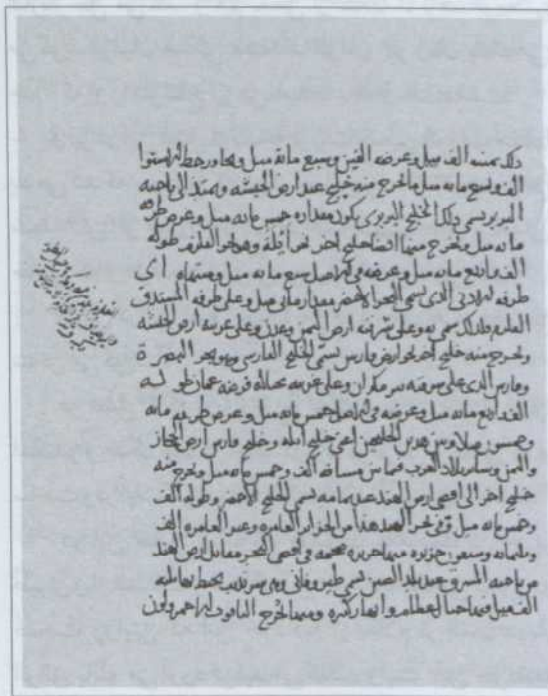 ذلك ثمنية الف ميل وعرضه الفين وسبع مائة ميل وتجاوز خط الاستوا
الف وتسع مائة ميل ما تخرج منه خليج عند ارض الحبشة ويمتد الى ناحية
البربر يسمى ذلك الخليج البربري يكون مقداره خمس مائة ميل وعرض طرفه
مائة ميل وتخرج منها ايضا خليج اخر نحو ايلة وهو بحر القلزم طوله
الف واربع مائة ميل وعرضه في الاصل سبع مائة ميل ومنتهاه اى
طرفه الادنى الذى يسمى البحر الاخضر مقدار مائتى ميل وعلى طرفه المستدق
القلزم ولذلك سمى به وعلى شرقيه ارض اليمن وعدن وعلى غربيه ارض الحبشة
وتخرج منه خليج اخر نحو ارض فارس يسمى الخليج الفارسى وهو بحر البصرة
وفارس الذى على شرقيه تيز مكران وعلى غربيه عمان طوله
الف واربع مائة ميل وعرضه فى الاصل خمس مائة ميل وعرض طرفه مائة
وخمسون ميلا وبين هذين الخليجين اعنى خليج ايلة وخليج فارس ارض الحجاز
واليمن وساير بلاد العرب فيما بين مسافة الف وخمس مائة ميل وتخرج منه
خليج اخر الى اقصى ارض الهند عند تمامه يسمى الخليج الاخضر وطوله الف
وخمس مائة ميل وفى بحر الهند هذا من الجزاير العامرة وغير العامرة الف
وثلثمائة وسبعون جزيرة منها جزيرة ضخمة فى اقصى البحر مقابل ارض الهند
من ناحية المشرق وعند بلاد الصين تسمى طبروبانى وهى سرنديب يحيط بها ثلثة
الف ميل فيها جبال عظام وانهار كثيرة ومنها تخرج الياقوت الاحمر ولون